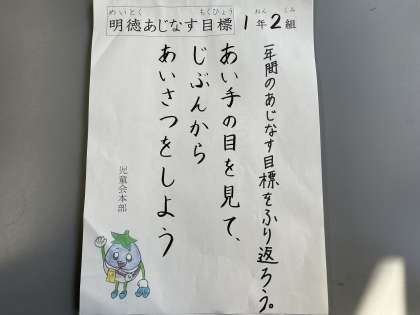 めいとく もくひょう
明徳あじなす目標
ねん くみ
1年2組
一年間のあじなす目標をふり返ろう。
あい手の目を見て、
じぶんから
あいさつをしよう
児童会本部